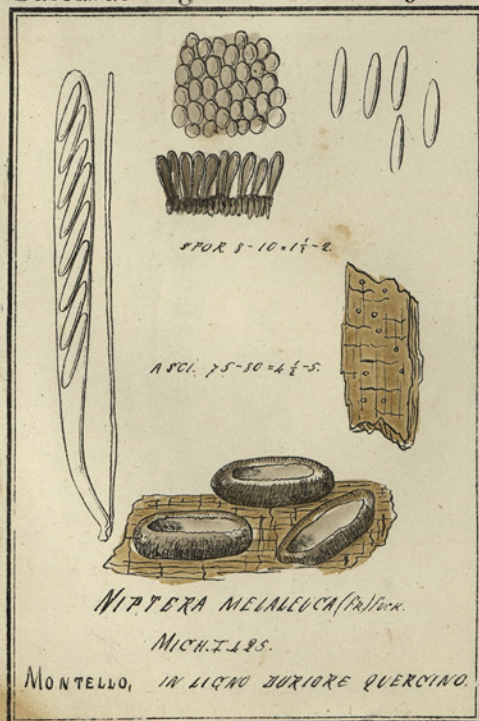 SPOR 8-10=1½-2.
ASCI. 75-80=4½-5.
NIPTERA MELALEUCA (Fr) Fuck.
MICH. I
MONTELLO, IN LIGNO DURIORE QUERCINO.